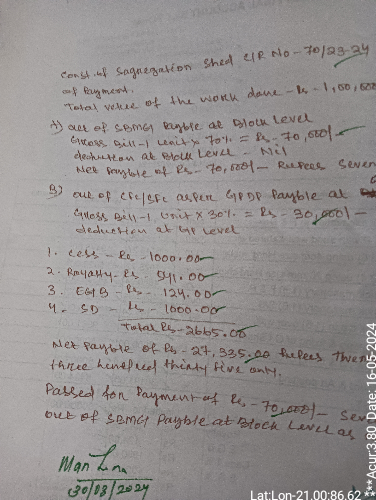 Const. of Sagregation Shed C/R No - 70/23-24
of Payment.
Total value of the work done - Rs - 1,00,000
A) out of SBMG Payble at Block Level
Gross Bill-1 Unit x 70% = Rs - 70,000/-
deduction at Block Level - Nil
Net Payble of Rs - 70,000/- Rupees Seven
B) out of CFC/SFC as per GPDP Payble at
Gross Bill-1 Unit x 30% = Rs - 30,000/-
deduction at GP Level
1. Cess - Rs - 1000.00
2. Royalty - Rs - 541.00
3. - Rs - 124.00
4. SD - Rs - 1000.00
Total Rs - 2665.00
Net Payble of Rs - 27,335.00 Rupees
three hundred thirty five only.
Passed for Payment of Rs - 70,000/-
out of SBMG Payble at Block Level as
30/03/2024
Lat:Lon-21.00:86.62
***Acur:3.80 Date: 16-05-2024